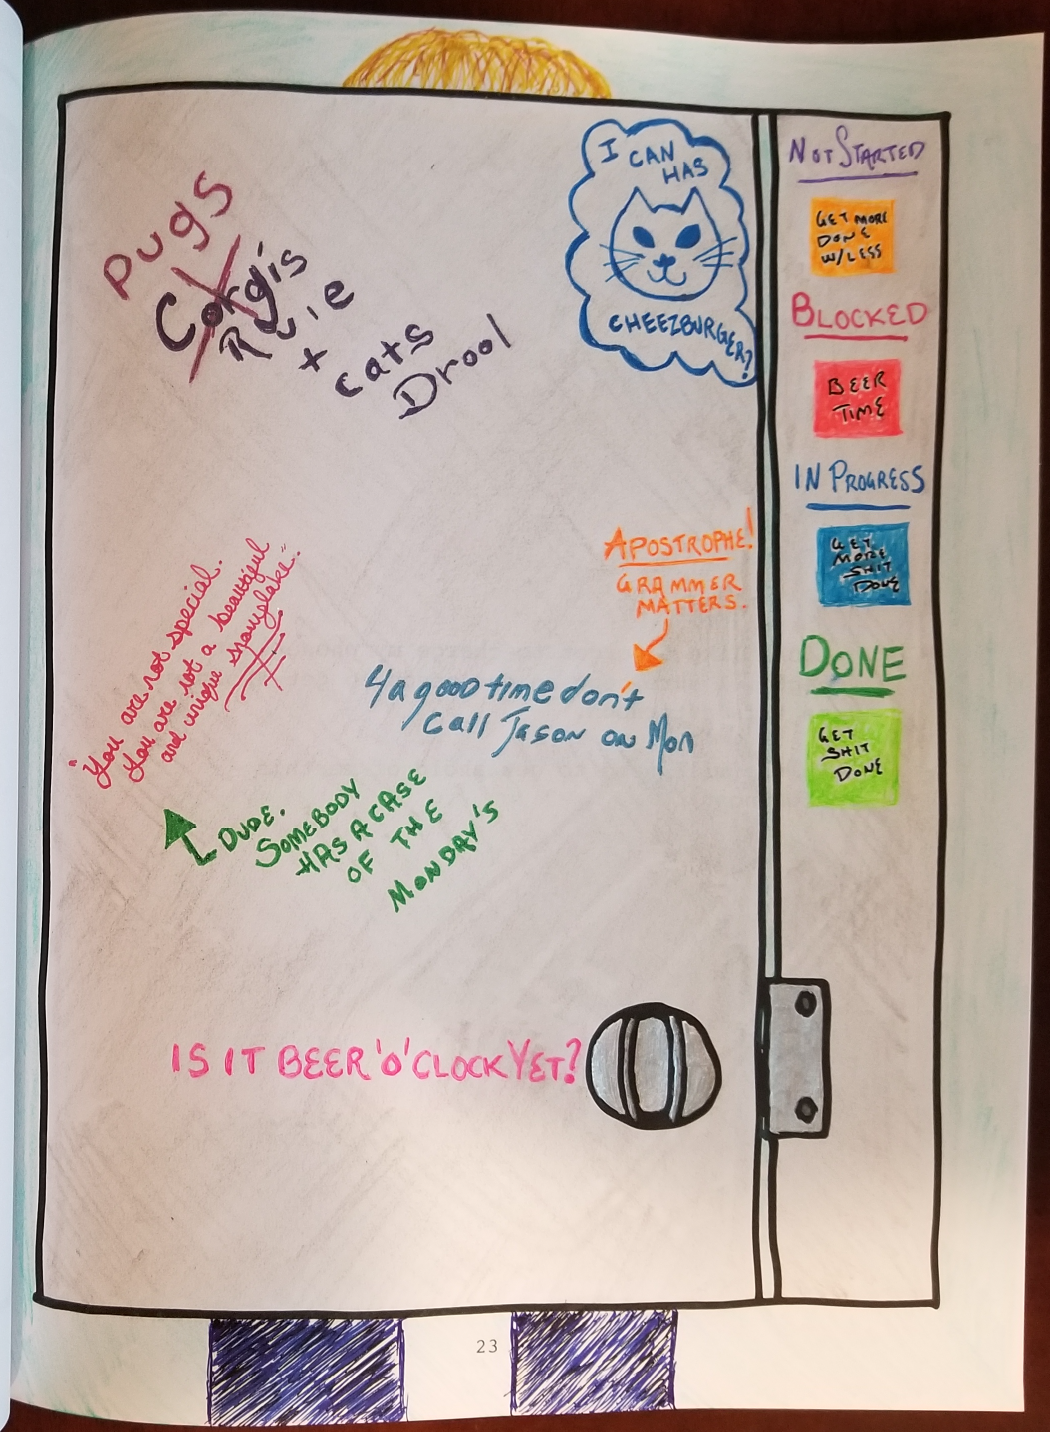 Pugs
Corgi's
Rule
+
Cats
Drool
I CAN
HAS
CHEEZBURGER?
"You are not special.
You are not a beautiful
and unique snowflake."
DUDE.
SOMEBODY
HAS A CASE
OF THE
MONDAY'S
APOSTROPHE!
GRAMMER
MATTERS.
4 a good time don't
call Jason on Mon
IS IT BEER 'O' CLOCK YET?
NOT STARTED
GET MORE
DONE
W/LESS
BLOCKED
BEER
TIME
IN PROGRESS
GET
MORE
SHIT
DONE
DONE
GET
SHIT
DONE
23